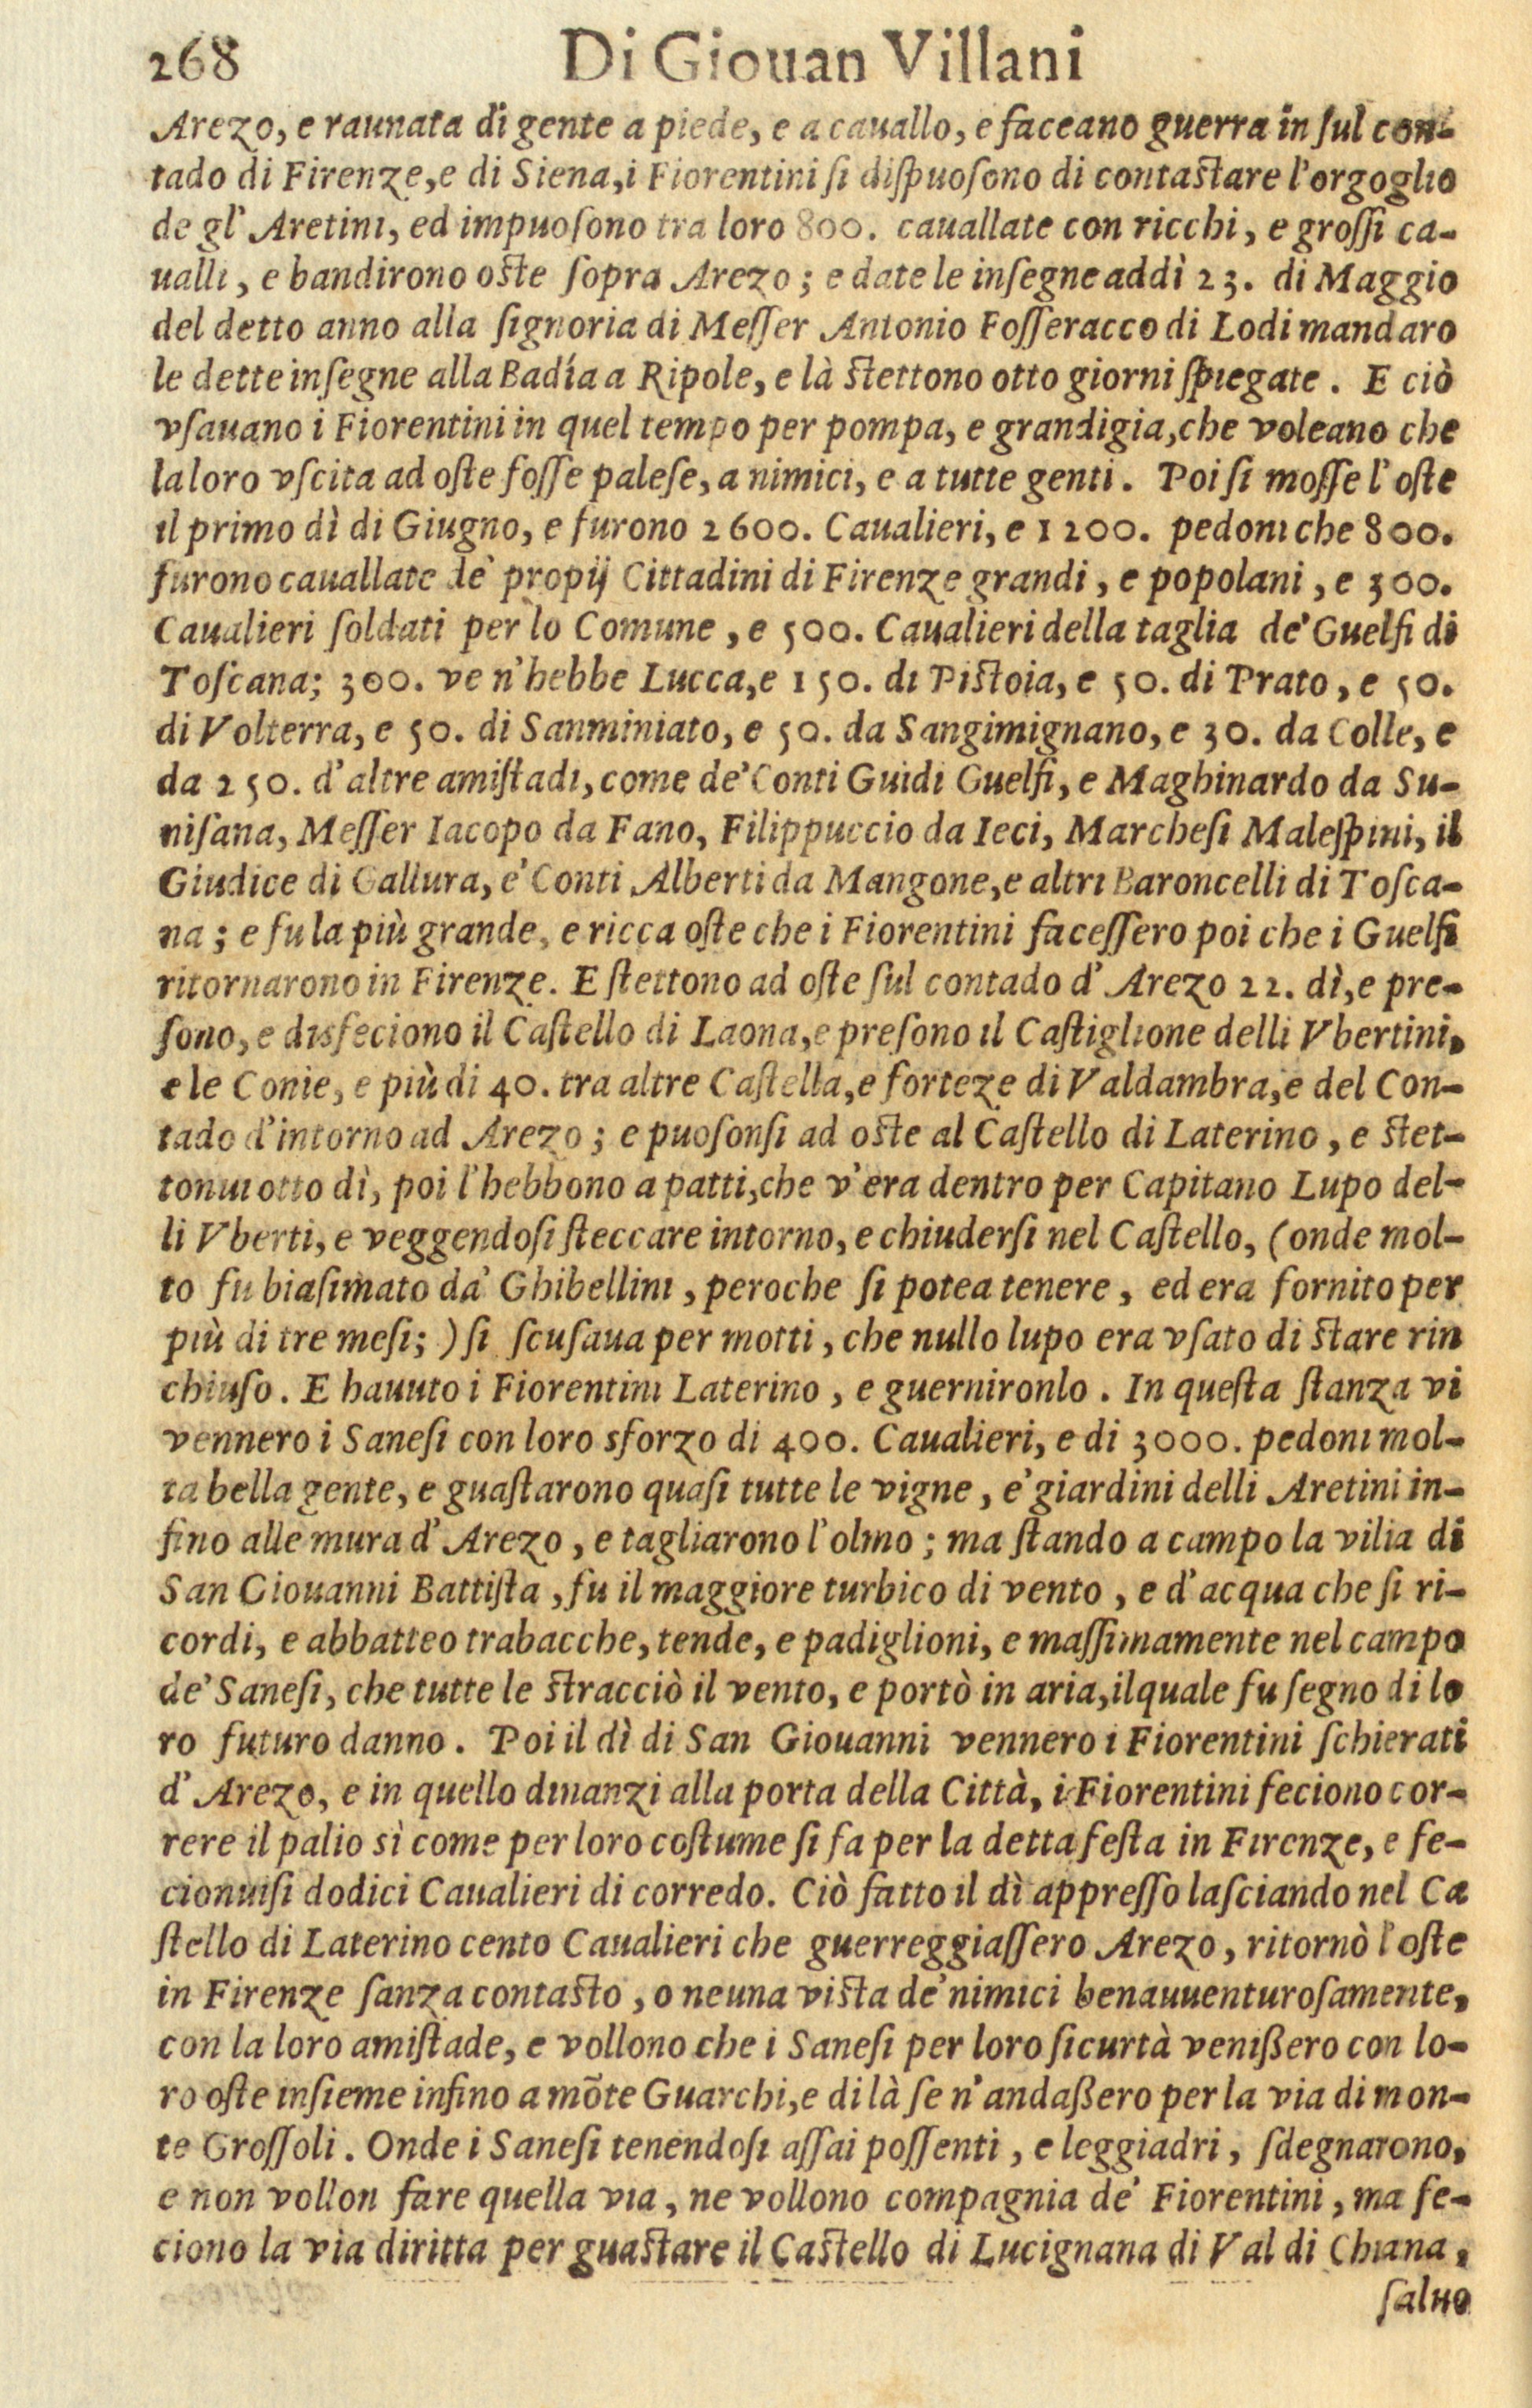 268 Di Giouan Villani
Arezo, e raunata di gente a piede, e a cauallo, e faceano guerra in ſul con-
tado di Firenze, e di Siena, i Fiorentini ſi diſpuoſono di contaſtare l'orgoglio
de gl' Aretini, ed impuoſono tra loro 800. cauallate con ricchi, e groſſi ca-
ualli, e bandirono oſte ſopra Arezo; e date le inſegne addì 23. di Maggio
del detto anno alla ſignoria di Meſſer Antonio Foſſeracco di Lodi mandaro
le dette inſegne alla Badía a Ripole, e là ſtettono otto giorni ſpiegate. E ciò
vſauano i Fiorentini in quel tempo per pompa, e grandigia, che voleano che
la loro vſcita ad oſte foſſe paleſe, a nimici, e a tutte genti. Poi ſi moſſe l'oſte
il primo dì di Giugno, e furono 2600. Caualieri, e 1200. pedoni che 800.
furono cauallate de' propij Cittadini di Firenze grandi, e popolani, e 300.
Caualieri ſoldati per lo Comune, e 500. Caualieri della taglia de' Guelfi di
Toſcana; 300. ve n'hebbe Lucca, e 150. di Piſtoia, e 50. di Prato, e 50.
di Volterra, e 50. di Sanminiato, e 50. da Sangimignano, e 30. da Colle, e
da 250. d'altre amiſtadi, come de' Conti Guidi Guelfi, e Maghinardo da Su-
niſana, Meſſer Iacopo da Fano, Filippuccio da Ieci, Marcheſi Maleſpini, il
Giudice di Gallura, e' Conti Alberti da Mangone, e altri Baroncelli di Toſca-
na; e fu la più grande, e ricca oſte che i Fiorentini faceſſero poi che i Guelfi
ritornarono in Firenze. E ſtettono ad oſte ſul contado d' Arezo 22. dì, e pre-
ſono, e disfeciono il Caſtello di Laona, e preſono il Caſtiglione delli Vbertini,
e le Conie, e più di 40. tra altre Caſtella, e forteze di Valdambra, e del Con-
tado d'intorno ad Arezo; e puoſonſi ad oſte al Caſtello di Laterino, e ſtet-
tonui otto dì, poi l'hebbono a patti, che v'era dentro per Capitano Lupo del-
li Vberti, e veggendoſi ſteccare intorno, e chiuderſi nel Caſtello, (onde mol-
to fu biaſimato da' Ghibellini, peroche ſi potea tenere, ed era fornito per
più di tre meſi; ) ſi ſcuſaua per motti, che nullo lupo era vſato di ſtare rin
chiuſo. E hauuto i Fiorentini Laterino, e guernironlo. In queſta ſtanza vi
vennero i Saneſi con loro sforzo di 400. Caualieri, e di 3000. pedoni mol-
ta bella gente, e guaſtarono quaſi tutte le vigne, e' giardini delli Aretini in-
fino alle mura d' Arezo, e tagliarono l'olmo; ma ſtando a campo la vilia di
San Giouanni Battiſta, fu il maggiore turbico di vento, e d'acqua che ſi ri-
cordi, e abbatteo trabacche, tende, e padiglioni, e maſſimamente nel campo
de' Saneſi, che tutte le ſtracciò il vento, e portò in aria, ilquale fu ſegno di lo
ro futuro danno. Poi il dì di San Giouanni vennero i Fiorentini ſchierati
d' Arezo, e in quello dinanzi alla porta della Città, i Fiorentini feciono cor-
rere il palio sì come per loro coſtume ſi fa per la detta feſta in Firenze, e fe-
cionuiſi dodici Caualieri di corredo. Ciò fatto il dì appreſſo laſciando nel Ca
ſtello di Laterino cento Caualieri che guerreggiaſſero Arezo, ritornò l'oſte
in Firenze ſanza contaſto, o neuna viſta de' nimici benauuenturoſamente,
con la loro amiſtade, e vollono che i Saneſi per loro ſicurtà venißero con lo-
ro oſte inſieme infino a mõte Guarchi, e di là ſe n'andaßero per la via di mon-
te Groſſoli. Onde i Saneſi tenendoſi aſſai poſſenti, e leggiadri, ſdegnarono,
e non vollon fare quella via, ne vollono compagnia de' Fiorentini, ma fe-
ciono la via diritta per guaſtare il Caſtello di Lucignana di Val di Chiana,
ſaluo